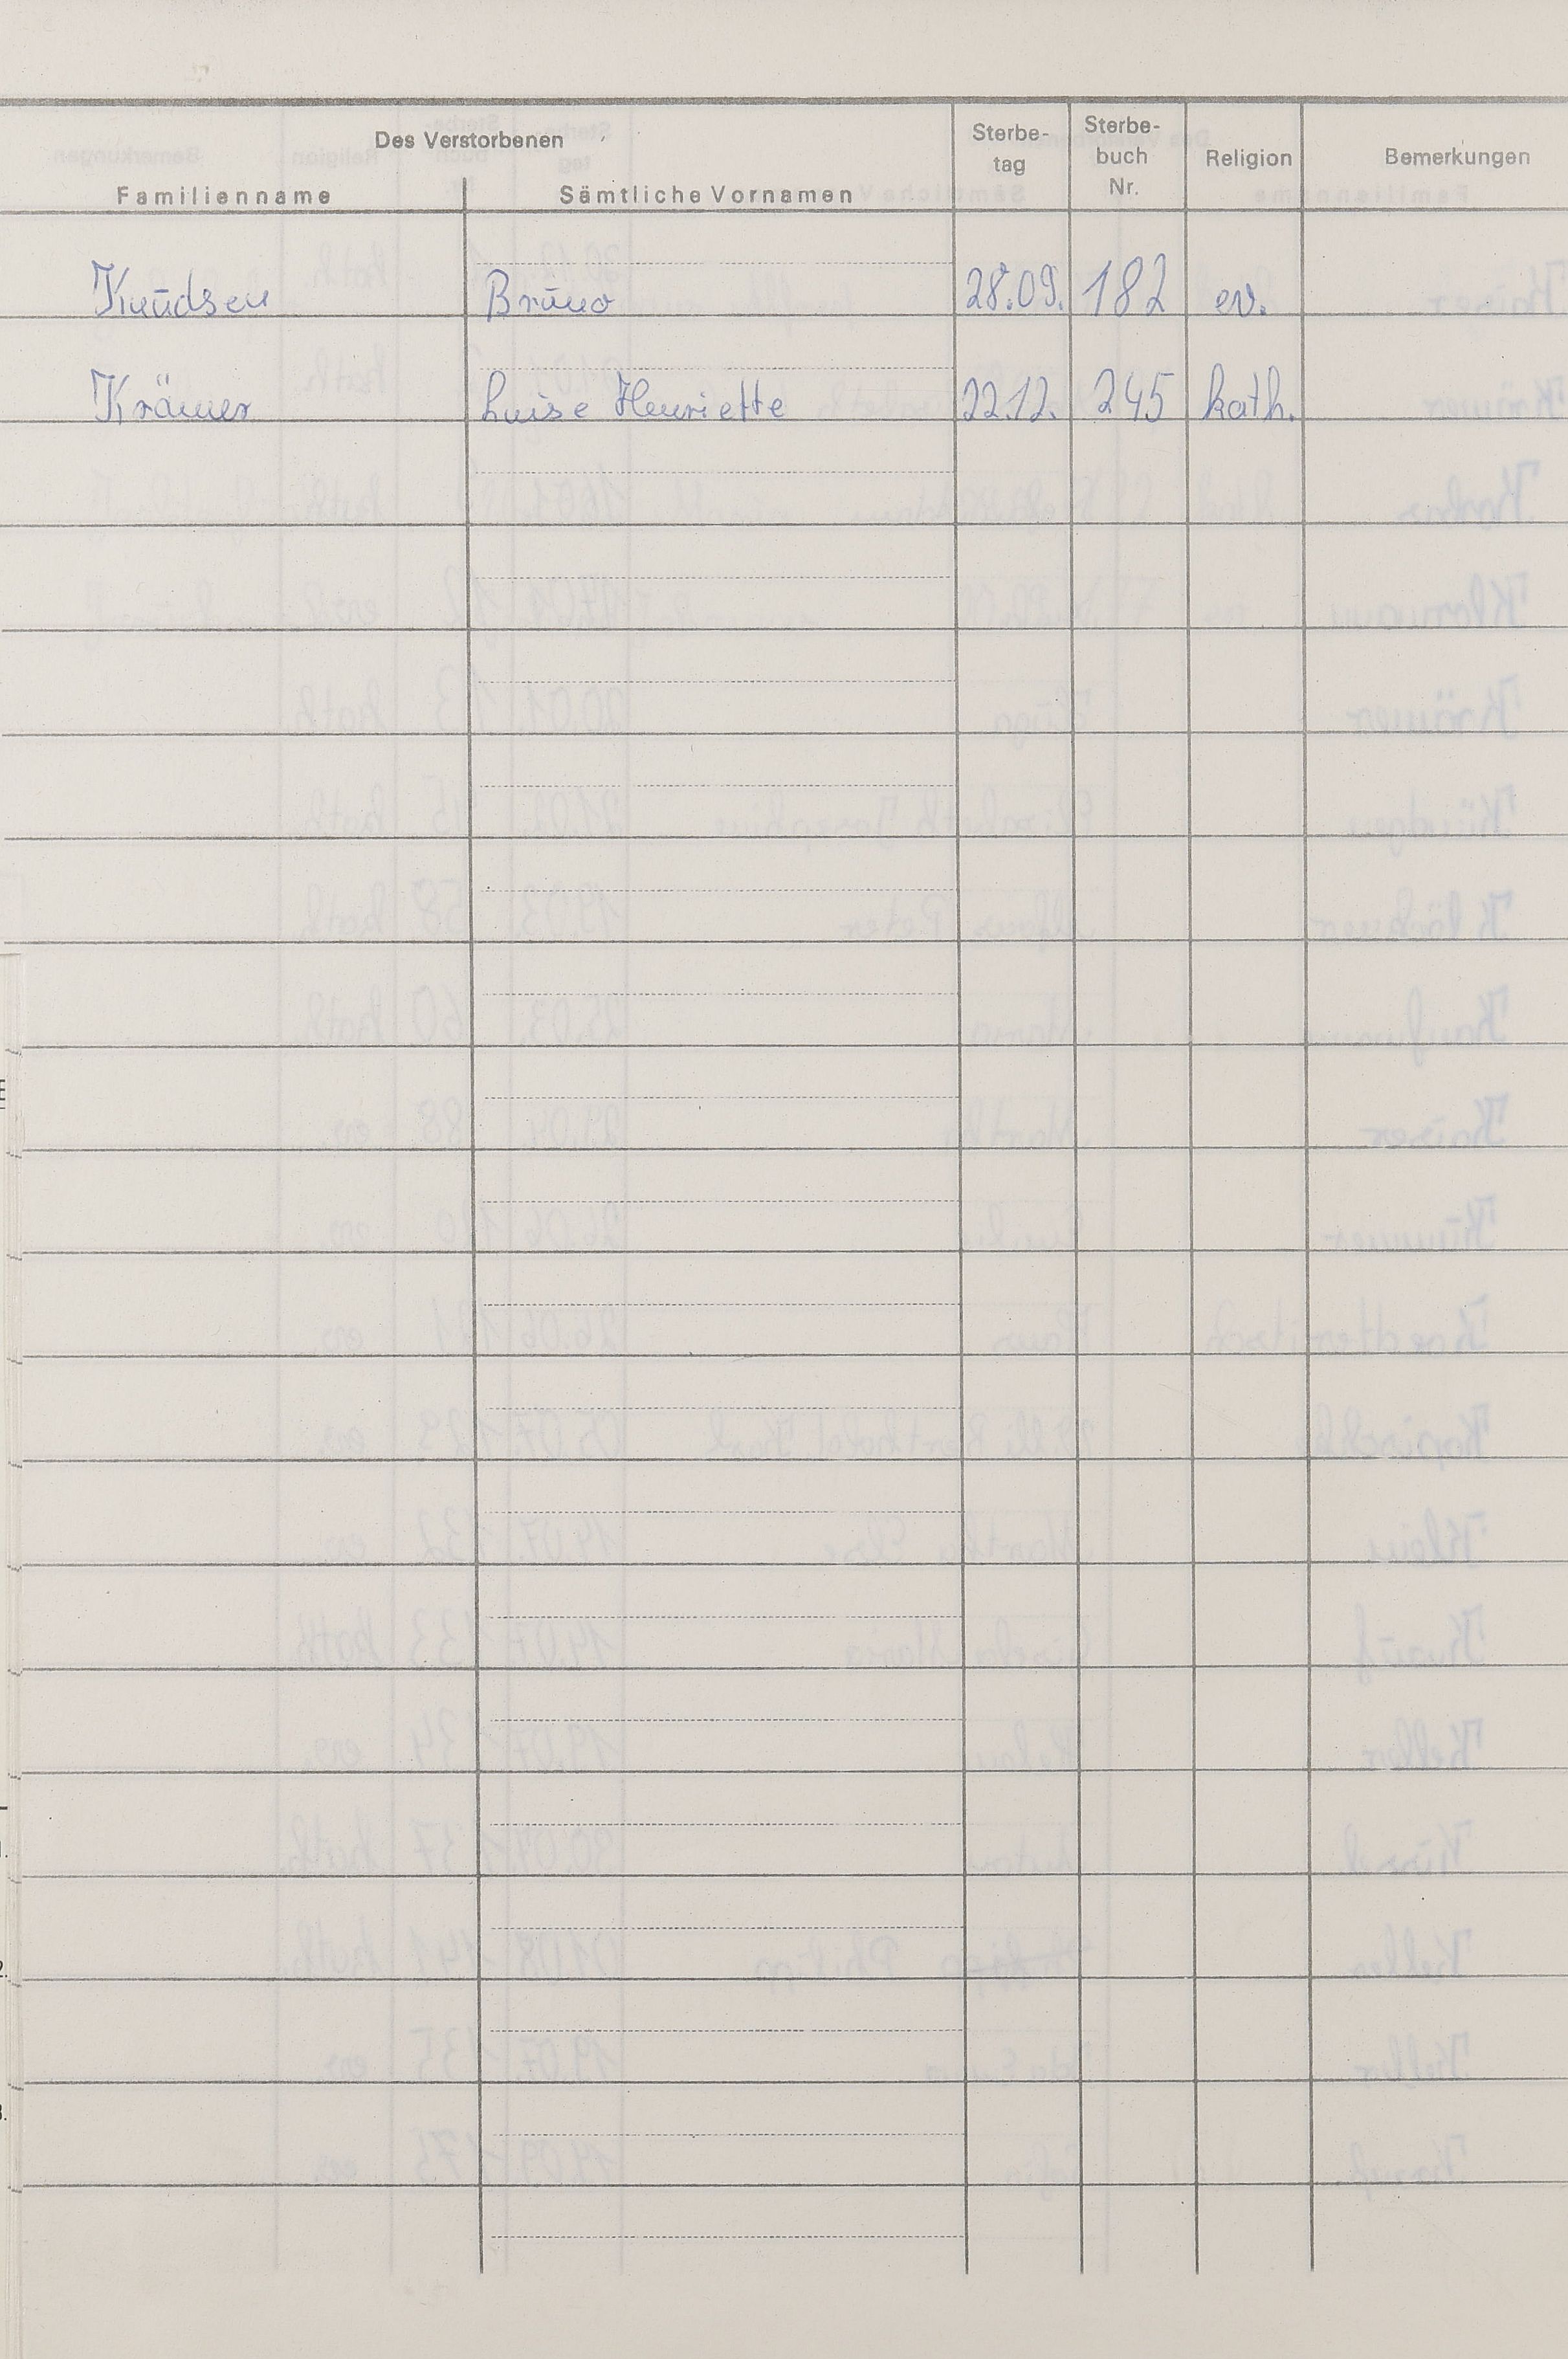 Des Verstorbenen
Familienname
Sämtliche Vornamen
Sterbe-
tag
Sterbe-
buch
Nr.
Religion
Bemerkungen
Knudsen Bruno 28.09. 182 ev.
Krämer Luise Henriette 22.12. 245 kath.